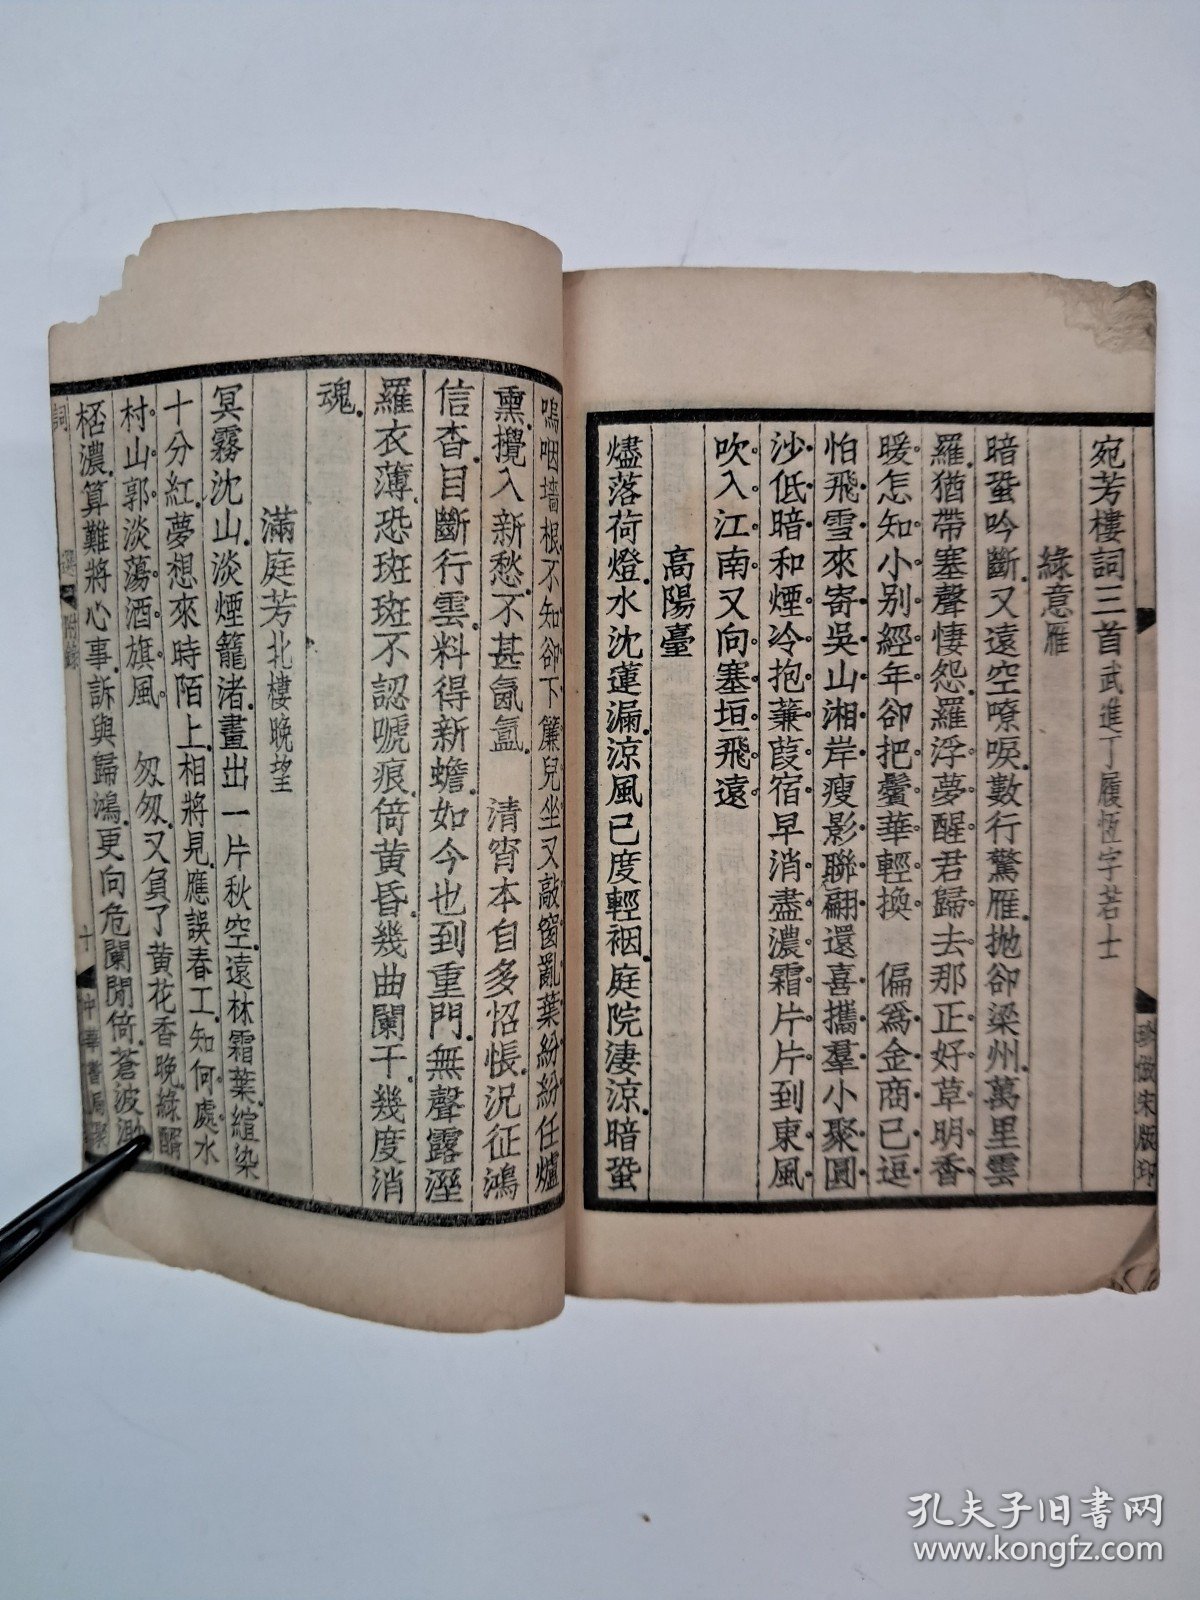 宛芳樓詞三首武進丁履恆字若士
綠意雁
暗蛩吟斷又遠空嘹唳數行驚雁拋卻梁州萬里雲
羅猶帶塞聲悽怨羅浮夢醒君歸去那正好草明香
暖怎知小別經年卻把鬢華輕換　偏爲金商已逗
怕飛雪來寄吳山湘岸瘦影聯翩還喜攜羣小聚圓
沙低暗和煙冷抱蒹葭宿早消盡濃霜片片到東風
吹入江南又向塞垣飛遠
高陽臺
燼落荷燈水沈蓮漏涼風已度輕裀庭院淒涼暗蛩
嗚咽墻根不知卻下簾兒坐又敲窗亂葉紛紛任爐
熏攪入新愁不甚氤氳　清宵本自多怊悵況征鴻
信杳目斷行雲料得新蟾如今也到重門無聲露溼
羅衣薄恐斑斑不認嗁痕倚黃昏幾曲闌干幾度消
魂
滿庭芳北樓晚望
冥霧沈山淡煙籠渚畫出一片秋空遠林霜葉縇染
十分紅夢想來時陌上相將見應誤春工知何處水
村山郭淡蕩酒旗風　匆匆又負了黃花香晚綠醑
桮濃算難將心事訴與歸鴻更向危闌閒倚蒼波渺
詞選　附錄
十
中華書局聚
珍倣宋版印
孔夫子旧书网
www.kongfz.com